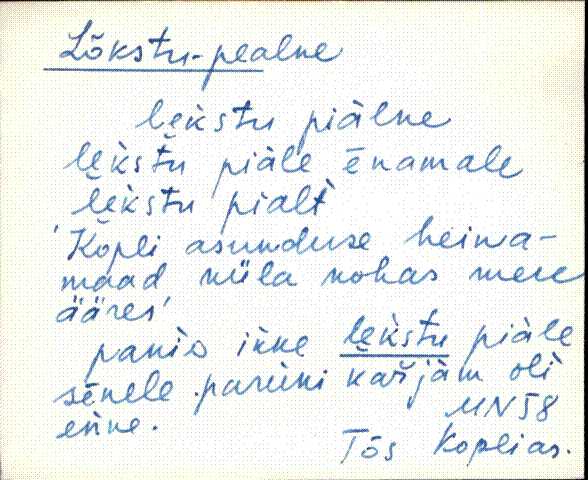 Lõkstu-pealne
lekstu piàlne
lekstu piàle ēnamale
lekstu pialt
'Kopli asunduse heina-
maad küla kohas mere
ääres'
panìs ikke lekstu piàle
sēnele .parùni kařjàm oli
enne. MN58
Tõs Koplias.